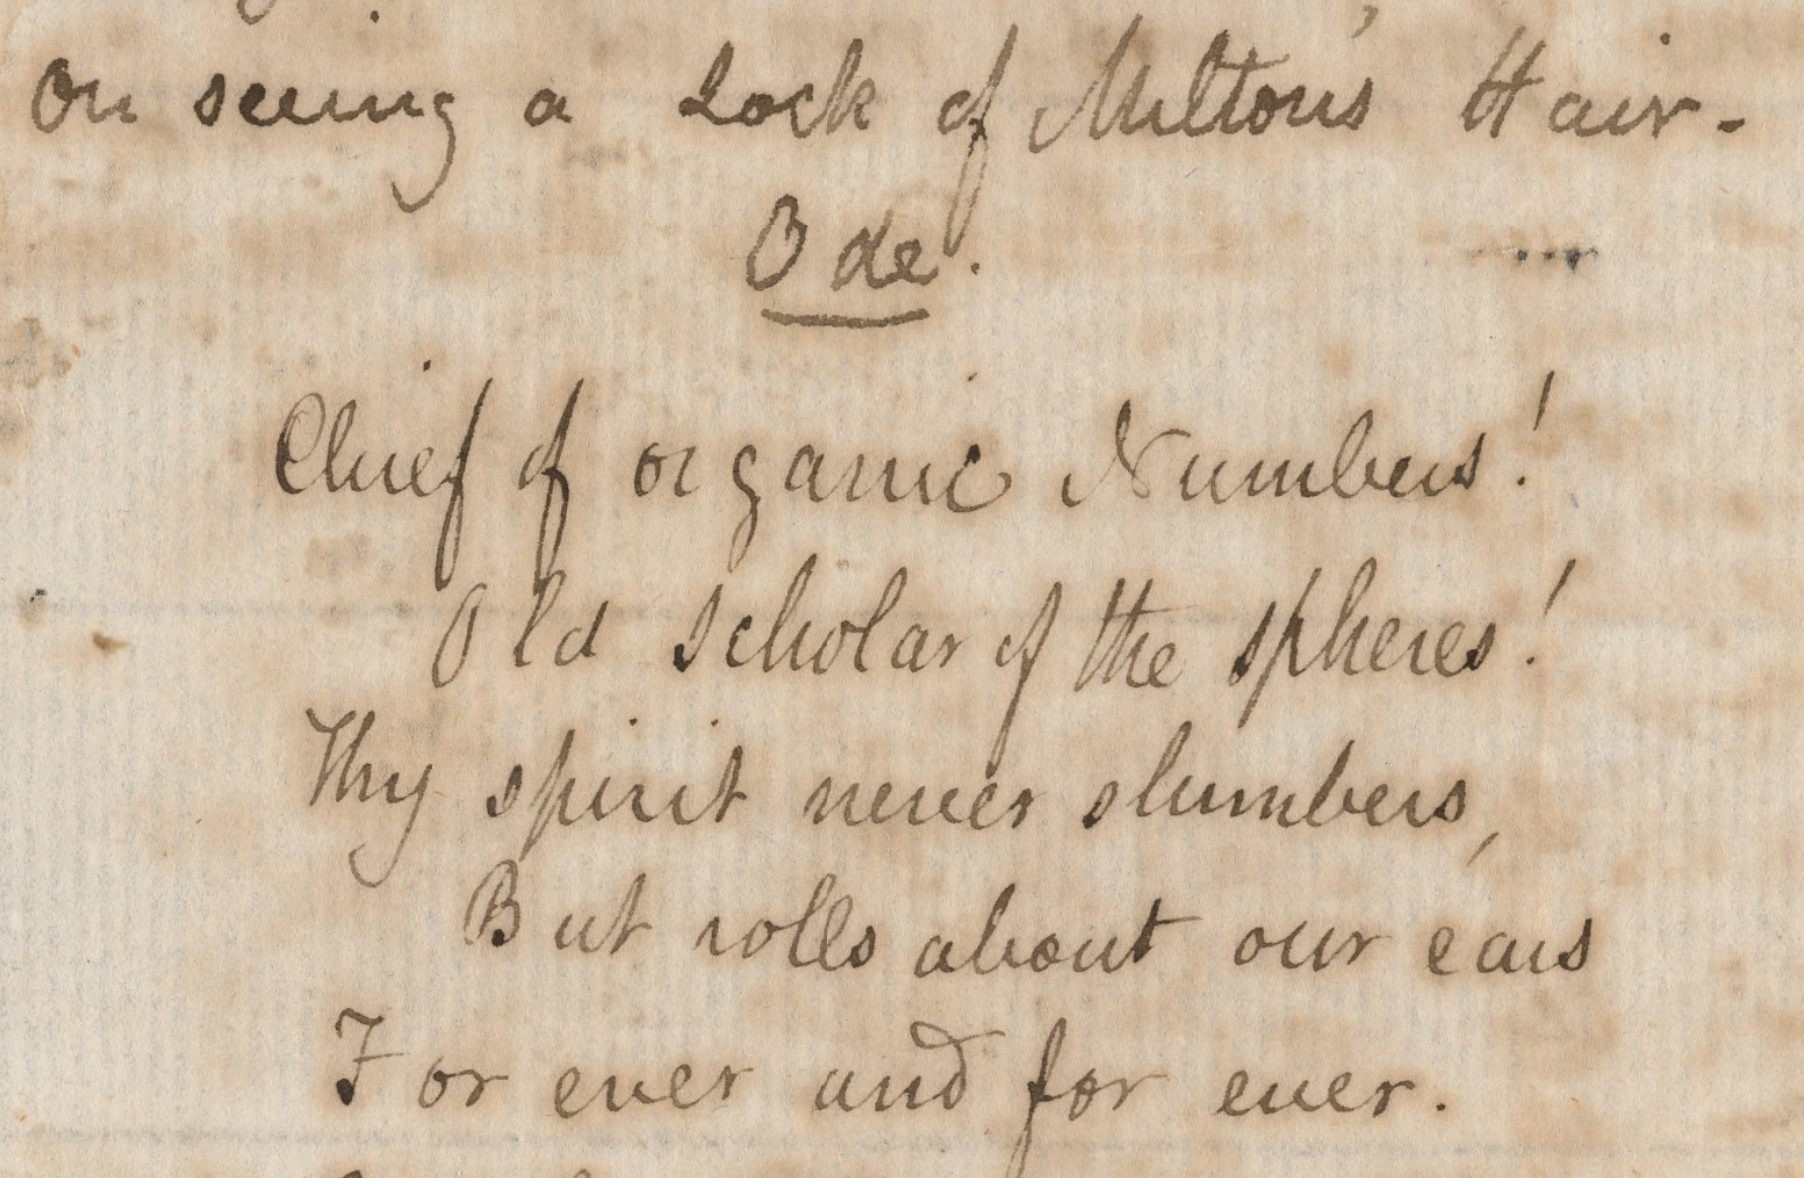 On seeing a Lock of Milton's Hair -
Ode.
Chief of organic Numbers!
Old scholar of the spheres!
Thy spirit never slumbers,
But rolls about our ears
For ever and for ever.